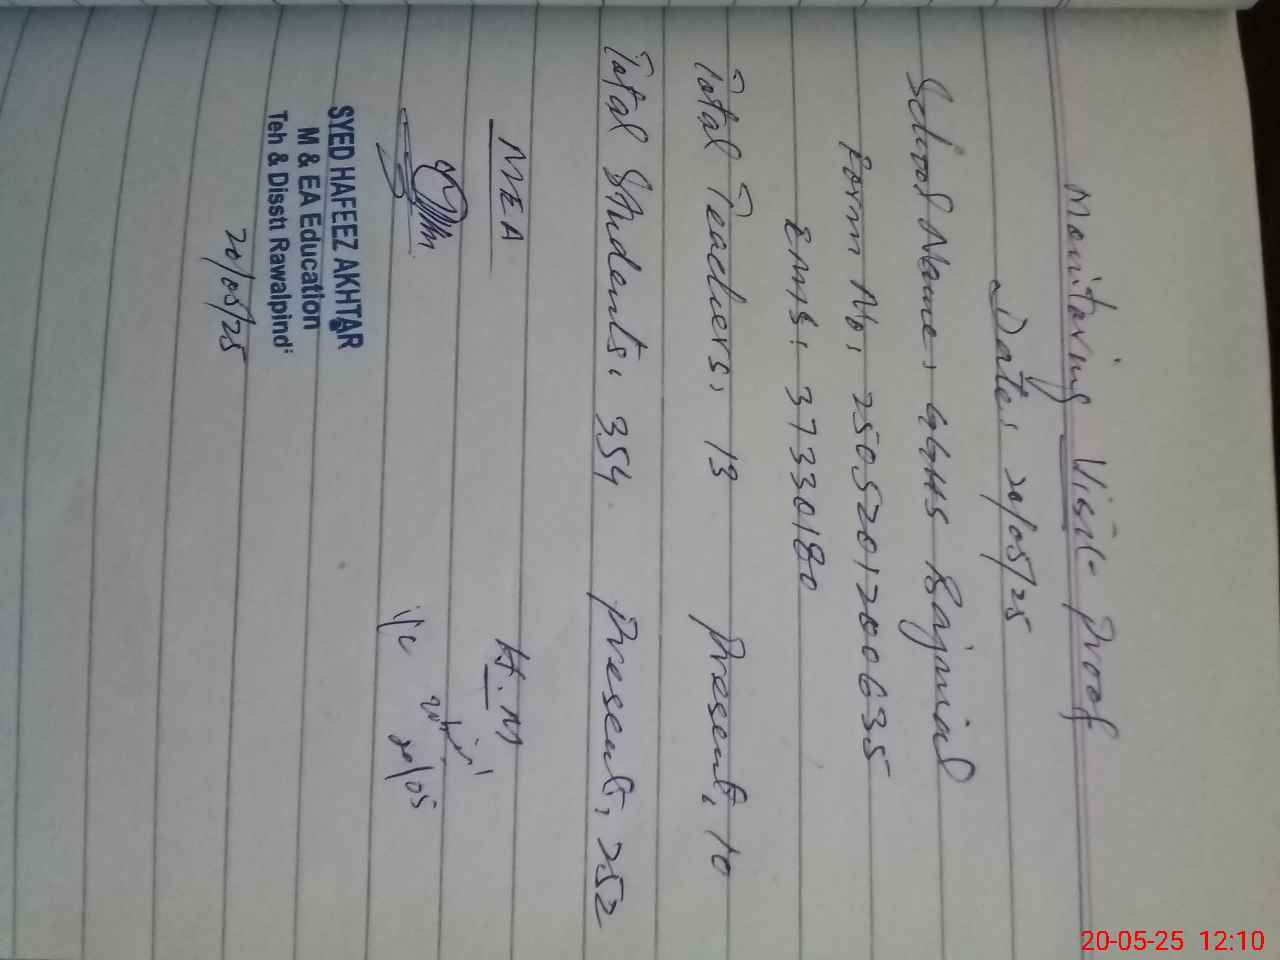 Monitoring Visit Proof
Date: 20/05/25
School Name: GGHS Bajnial
Form No: 2505201200635
EMIS: 37330180
Total Teachers: 13 Present: 10
Total Students: 354 Present: 252
MEA H.M
i/c
20/05
SYED HAFEEZ AKHTAR
M & EA Education
Teh & Disstt Rawalpindi
20/05/25
20-05-25 12:10